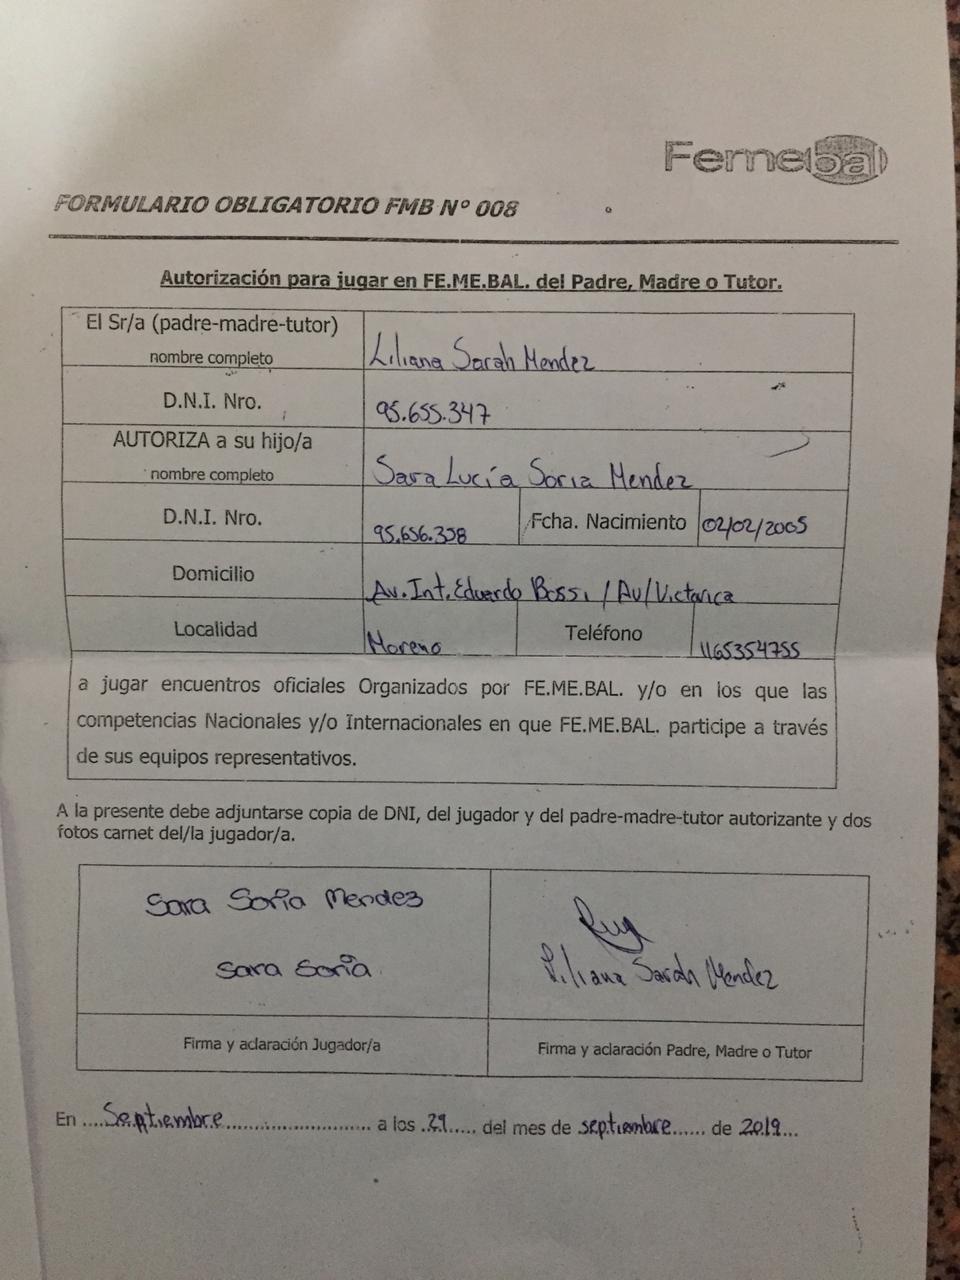 Femebal
FORMULARIO OBLIGATORIO FMB N° 008
Autorización para jugar en FE.ME.BAL. del Padre, Madre o Tutor.
El Sr/a (padre-madre-tutor)
nombre completo
Liliana Sarah Mendez
D.N.I. Nro.
95.655.347
AUTORIZA a su hijo/a
nombre completo
Sara Lucía Soria Mendez
D.N.I. Nro.
95.656.358
Fcha. Nacimiento
02/02/2005
Domicilio
Av. Int. Eduardo Bossi / Av/Victorica
Localidad
Moreno
Teléfono
1165354755
a jugar encuentros oficiales Organizados por FE.ME.BAL. y/o en los que las
competencias Nacionales y/o Internacionales en que FE.ME.BAL. participe a través
de sus equipos representativos.
A la presente debe adjuntarse copia de DNI, del jugador y del padre-madre-tutor autorizante y dos
fotos carnet del/la jugador/a.
Sara Soria Mendez
Sara Soria
Liliana Sarah Mendez
Firma y aclaración Jugador/a
Firma y aclaración Padre, Madre o Tutor
En ....Septiembre........................ a los .29..... del mes de septiembre...... de 2019...